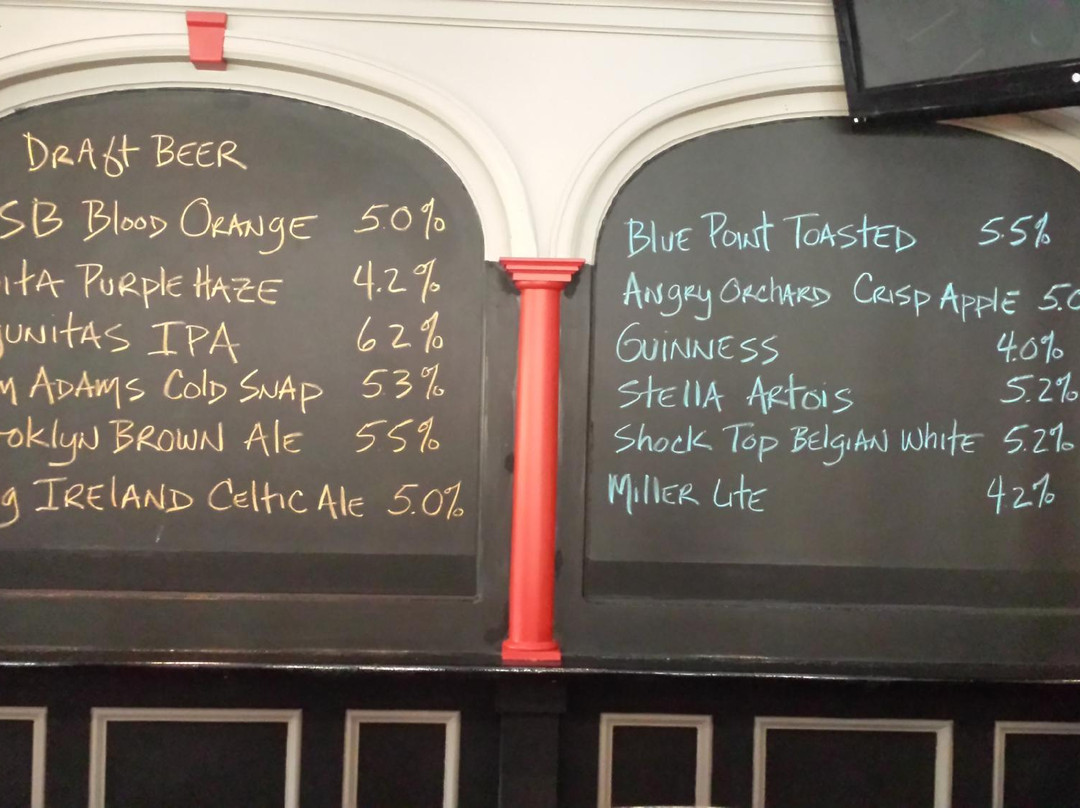 DRAft BEER
SB BLOOD ORANGE 5.0%
itA PURPLE HAZE 4.2%
UNitAS IPA 62%
M ADAMS COLD SNAP 53%
oklyn BROWN Ale 55%
g IRELAND Celtic Ale 5.0%
BLUE POINT TOASTED 5.5%
ANGRY ORCHARD CRISP APPLE 5.0
GUINNESS 4.0%
StellA ARtois 5.2%
Shock Top BELGIAN White 5.2%
MillER LitE 42%